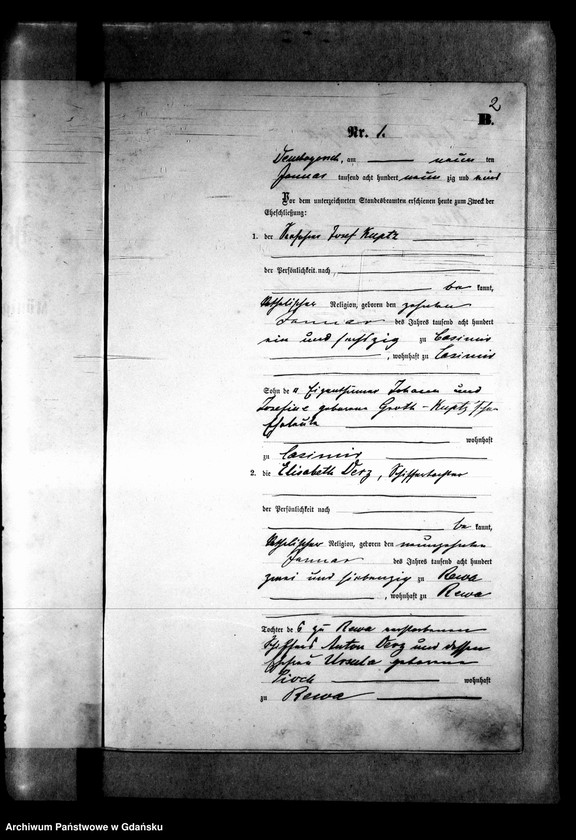 2
B.
Nr. 1.
am neun ten
Januar tausend acht hundert neun zig und eins
Vor dem unterzeichneten Standesbeamten erschienen heute zum Zweck der
Eheschließung:
1. der Josef Kuptz
der Persönlichkeit nach
be kannt,
katholischer Religion, geboren den zehnten
Januar des Jahres tausend acht hundert
ein und sechszig zu Casimir
, wohnhaft zu Casimir
Sohn de r Eigenthümer Johann und
Josefine geborene Groth - Kuptz'schen
Eheleute
wohnhaft
zu Casimir
2. die Elisabeth Derz, Schiffertochter
der Persönlichkeit nach
be kannt,
katholischer Religion, geboren den neunzehnten
Januar des Jahres tausend acht hundert
zwei und siebenzig zu Rewa
, wohnhaft zu Rewa
Tochter de s zu Rewa verstorbenen
Schiffers Anton Derz und dessen
Ehefrau Ursula geborene
wohnhaft
zu Rewa
Archiwum Państwowe w Gdańsku